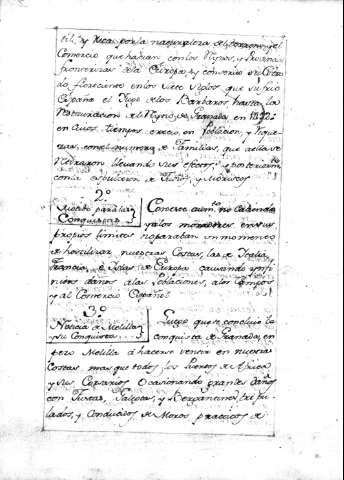 til, y rica por la naturaleza del terreno y el
Comercio que hacian con los Reynos, y Provincias
fronterizas de la Europa, y convenio
do floreciente en los siete siglos que sufrio
España el Jugo de los Barbaros hasta la
Restauracion del Reyno de Granada en 1492:
en cuios tiempos crecio en Poblacion, y Rique
zas, con el numero de Familias, que a ella se
retiraron llevando sus efectos y posteriorm.te
con la expulsion de Judios, y Moriscos
2.º
Conquistas
Con este aum.to no cabiendo
ya los moradores en sus
propios limites no paraban un momento
de hostilizar nuestras Costas, las de Italia,
Francia, e Islas de Europa causando ynfi
nitos daños a las Poblaciones, a los Campos
y al Comercio Español
3.º
Noticia de Melilla
y su Conquista
Luego que se concluyó la
conquista de Granada, em
pezo Melilla á hacerse sentir en nuestras
Costas mas que todos los Puertos de Africa
y sus Cosarios Ocasionando grandes daños
con Fustas, Galeotas, y Bergantines tripu
lados, y Conducidos de Moros practicos de